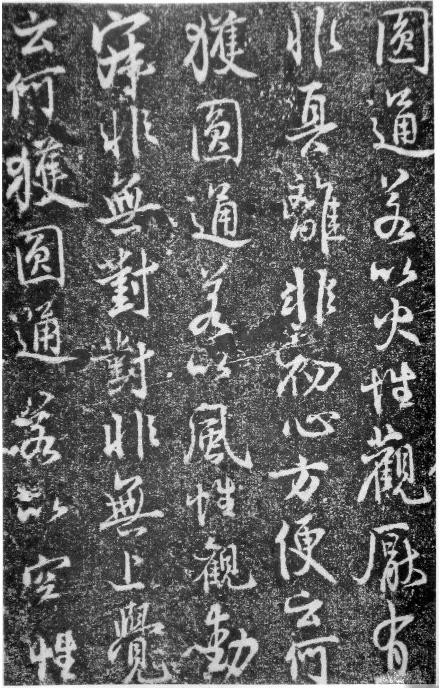 圓通若以火性觀厭有
非真離非初心方便云何
獲圓通若以風性觀動
寂非無對對非無上覺
云何獲圓通若以空性